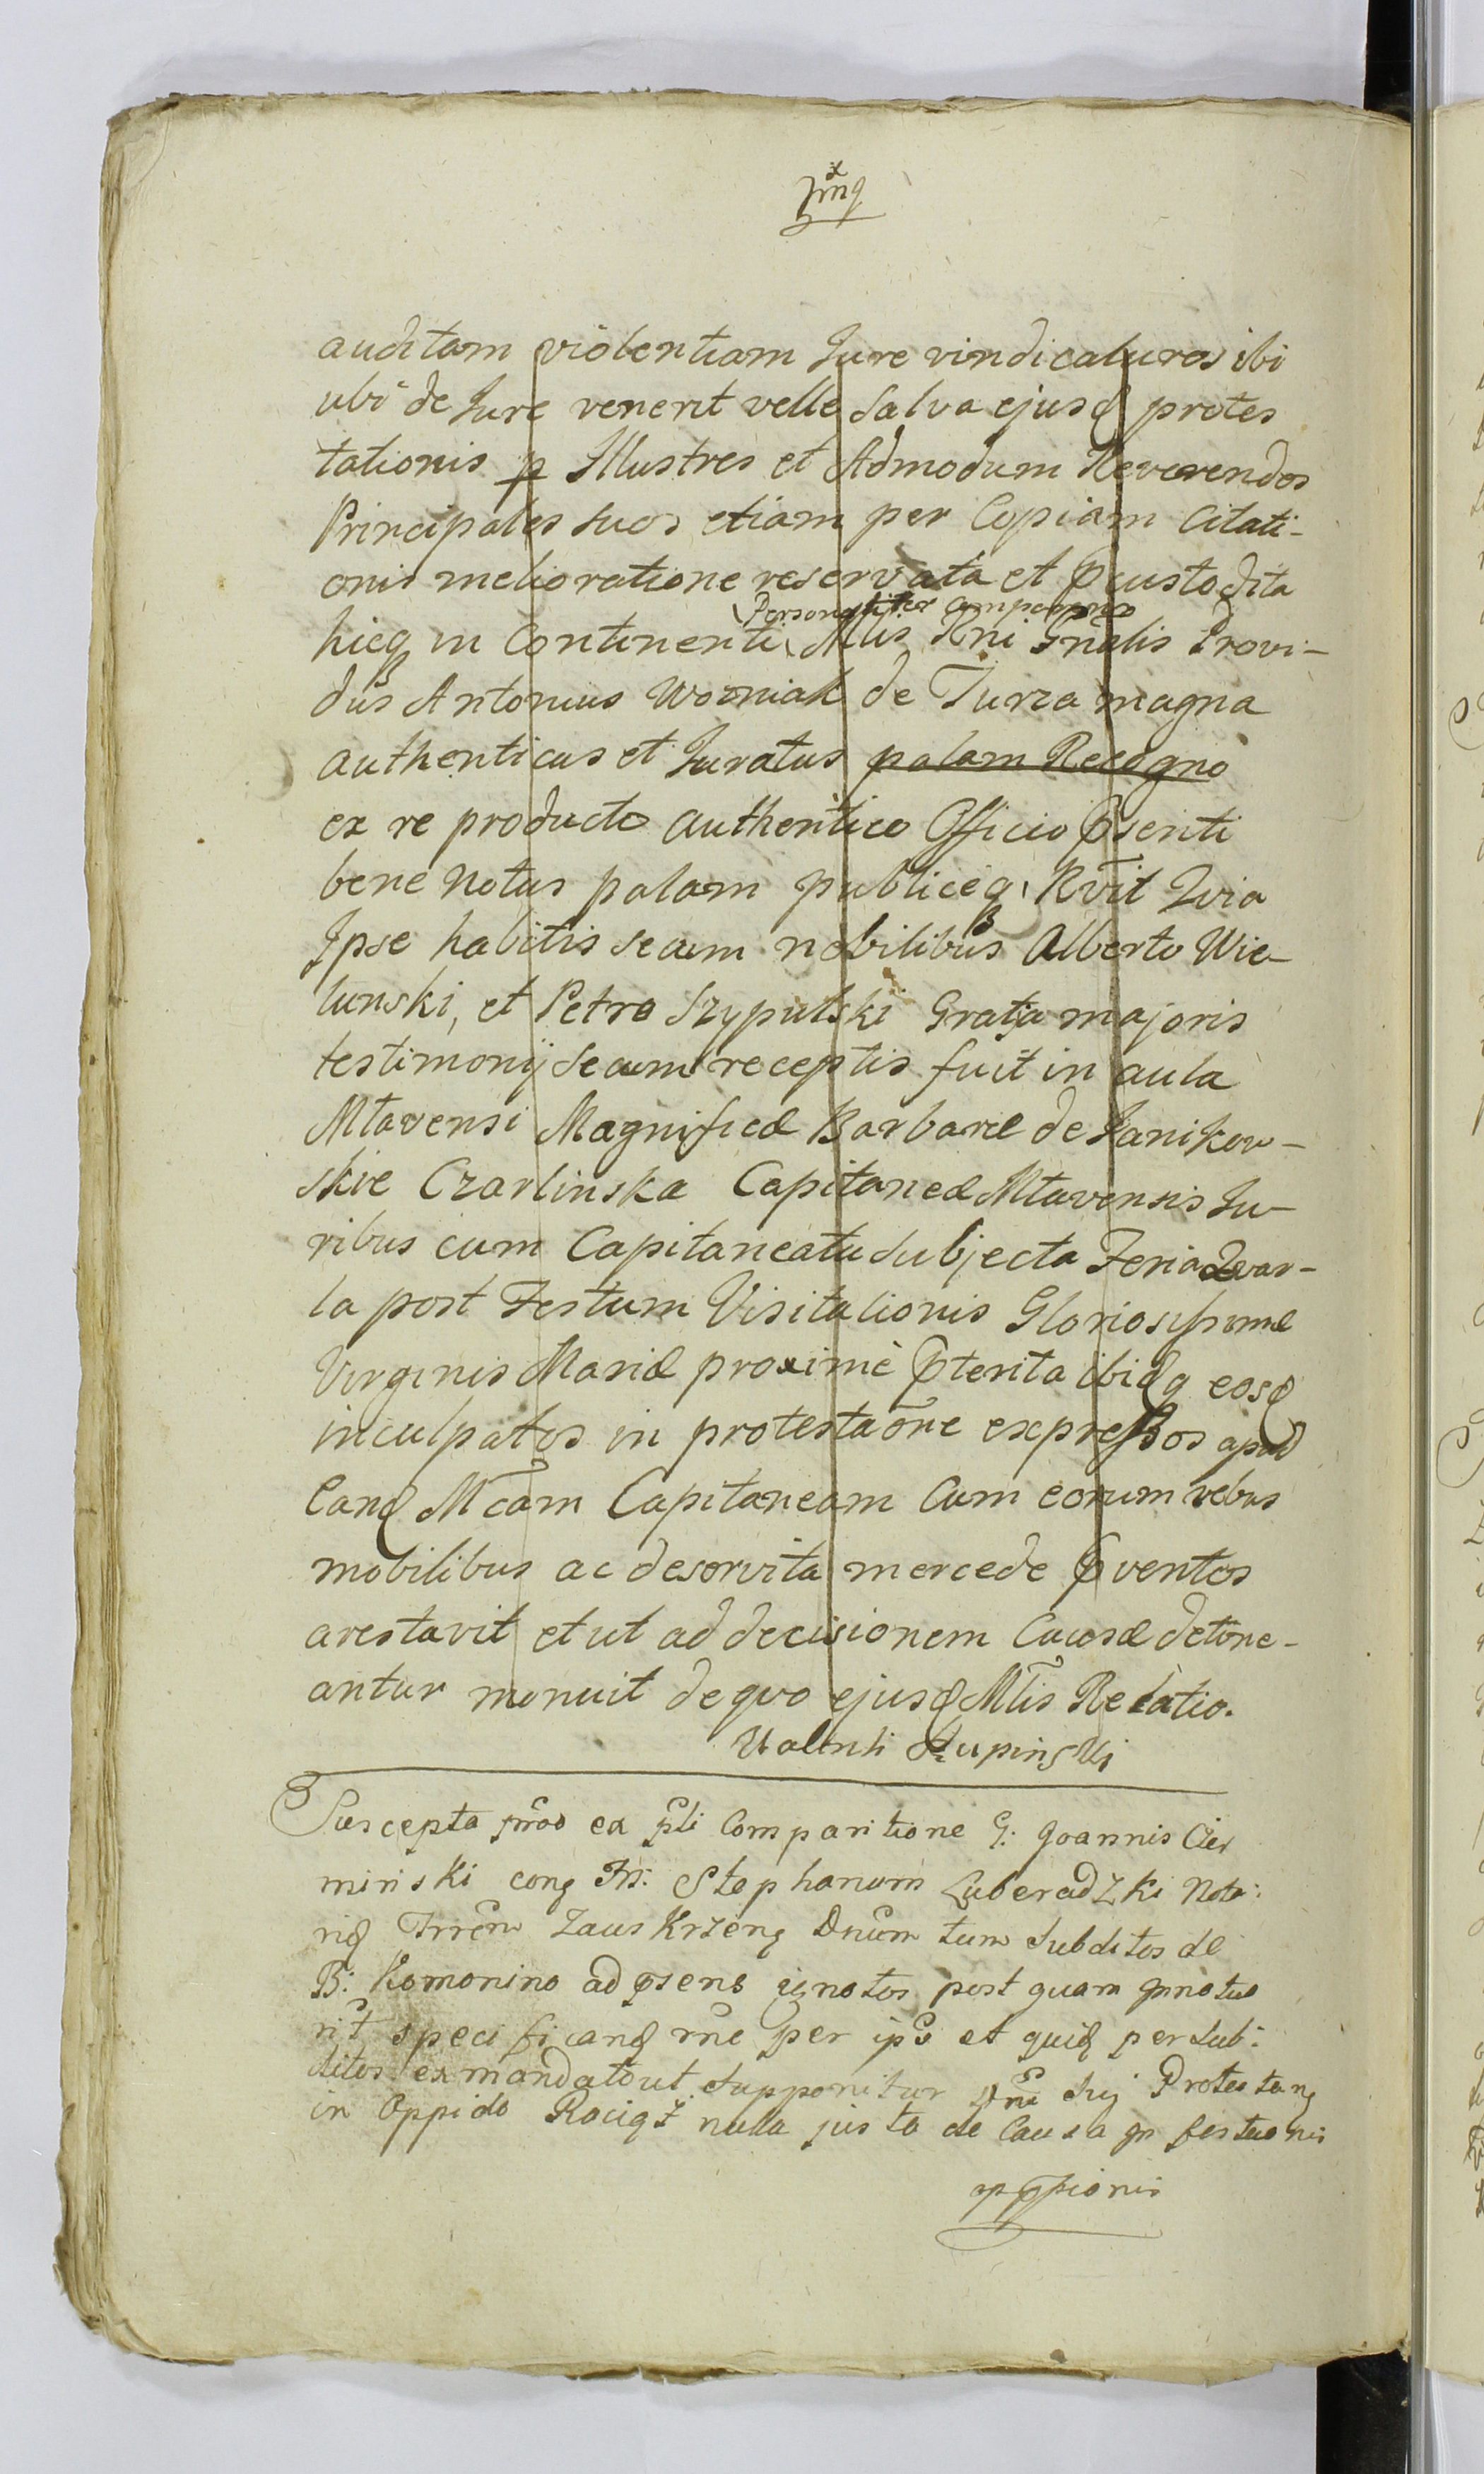 auditam violentiam Jure vindicaturos ibi
ubi de Jure venerit velle Salva ejusd protes
tationis p Illustres et Admodum Reverendos
Principales suos etiam per Copiam Citati-
onis melioratione reservata et pcustodita
Personaliter comparens
hicq in Continenti Mtis Rni Gnalis Provi-
dus Antonius Wozniak de Turza magna
authenticus et Juratus palam Recogno
ex re producto authentico Officio psenti
bene notus palam publiceq Rvit Qvia
Ipse habitis secum nobilibus Alberto Wie-
lunski, et Petro Szypulski Gratia majoris
testimonij secum receptis fuit in aula
Mlavensi Magnificæ Barbaræ de Janikow-
skie Czarlinska Capitaneæ Mlavensis Ju-
ribus cum Capitaneatu subjecta Feria Qvar-
ta post Festum Visitationis Gloriosissimæ
Virginis Mariæ proximè pterita ibidq eosd
inculpatos in protestaone expressos apud
Eand Mcam Capitaneam Cum eorum rebus
mobilibus ac deservita mercede pventos
arestavit et ut ad decisionem Causæ detine-
antur monuit de qvo ejusd Mtis Relatio.
Walenti Slupinski
Suscepta ex pti Comparitione G: Joannis Cie
minski Stephanum Luberadzki Nota:
Zauskrzeng Dnum tum subditos de
B: Komonino ad psens ignotos post quam
specificand per ips et quid per sub:
ditos ex mandato ut supponitur Dni sui Protestang
in Oppido Raciąż nulla justa de Causa